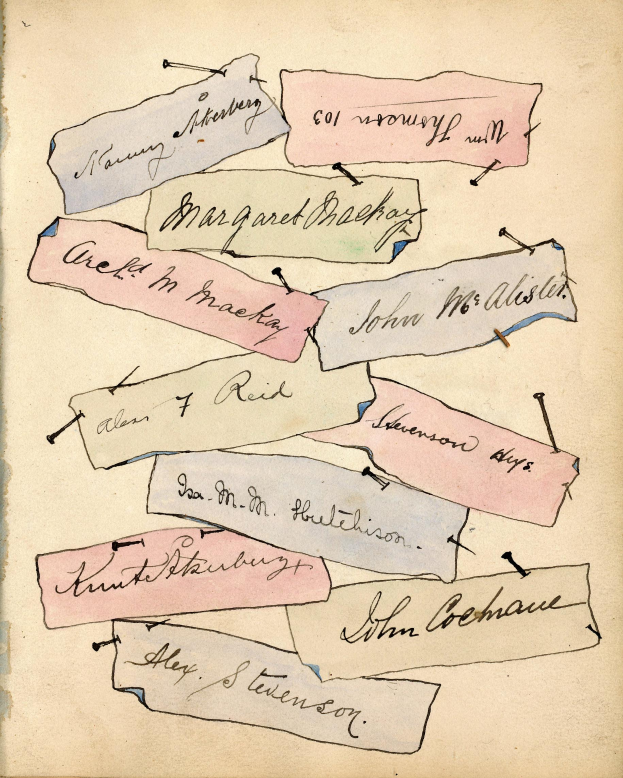 Nanny Åkerberg
Wm Thomson 103
Margaret Mackay
Archd M Mackay
John McAlister.
Alex F Reid
Stevenson
Isa. M. M. Hutchison.
Knut Åkerberg
John Cochrane
Alex. Stevenson.